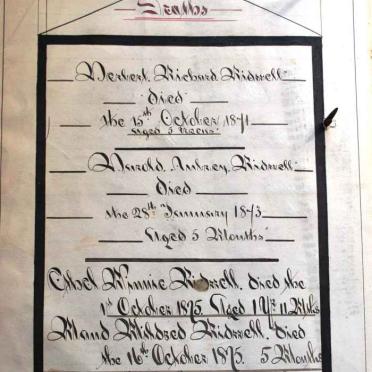 Deaths
Herbert Richard Bidwell
died
the 15th October 1871
aged 3 Weeks
Harold Aubrey Bidwell
Died
the 28th January 1873
Aged 5 Months
Ethel Minnie Bidwell, died the
1st October 1875. Aged 1 Yr 11 Mths
Maud Mildred Bidwell, Died
the 16th October 1875. 5 Months